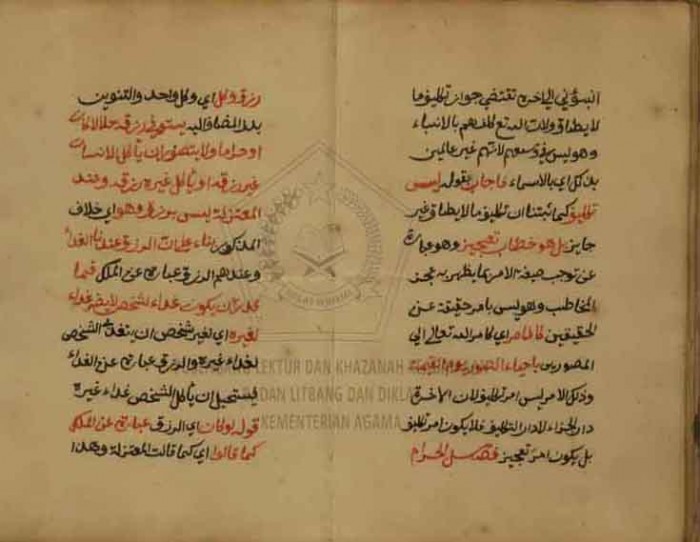 انبئوني الي اخره تقتضي جواز تكليف ما
لا يطاق ولانه تعالي كلفهم بالانباء
وهو ليس في وسعهم لانهم غير عالمين
بذلك اي بالاسماء فاجاب بقوله ليس
تكليف كما ثبتنا ان تكليف ما لا يطاق غير
جايز بل هو خطاب تعجيز وهو عبارة
عن توجب صيغة الامر بما يظهر به عجز
المخاطب وهو ليس بامر حقيقة عن
المحققين كالامر اي كامر الله تعالي الي
المصورين باحياء الصور يوم القيمة
وذلك الامر ليس امر تكليف لان الاخرة
دار الجزاء لا دار التكليف فلا يكون امر تكليف
بل يكون امر تعجيز فصل الحرام
رزق وكل اي وكل واحد والتنوين
بدل المضاف اليه يستوفي رزقه حلالا كان
او حراما ولا يتصور ان ياكل الانسان
غير رزقه او ياكل غيره رزقه وعند
المعتزلة ليس برزق وهو اي خلاف
المذكور بناء علي ان الرزق عندنا الغذاء
وعندهم الرزق عبارة عن الملك فيما
قدر ان يكون غذاء لشخص لا يصير غذاء
لغيره اي لغير شخص ان يتغذي الشخص
لغذاء غيره والرزق عبارة عن الغذاء
فيستحيل ان ياكل الشخص غذاء غيره
قوله ولو كان اي الرزق عبارة عن الملك
كما قالوا اي كما قالت المعتزلة وهذا
LEKTUR DAN KHAZANAH
BADAN LITBANG DAN DIKLAT
KEMENTERIAN AGAMA